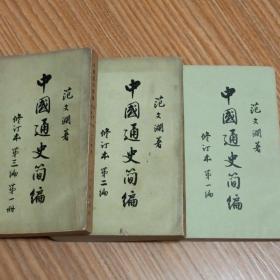 范文澜著
中國通史简编
修订本 第三编 第一册
范文澜著
中國通史简编
修订本 第二编
范文澜著
中國通史简编
修订本 第一编